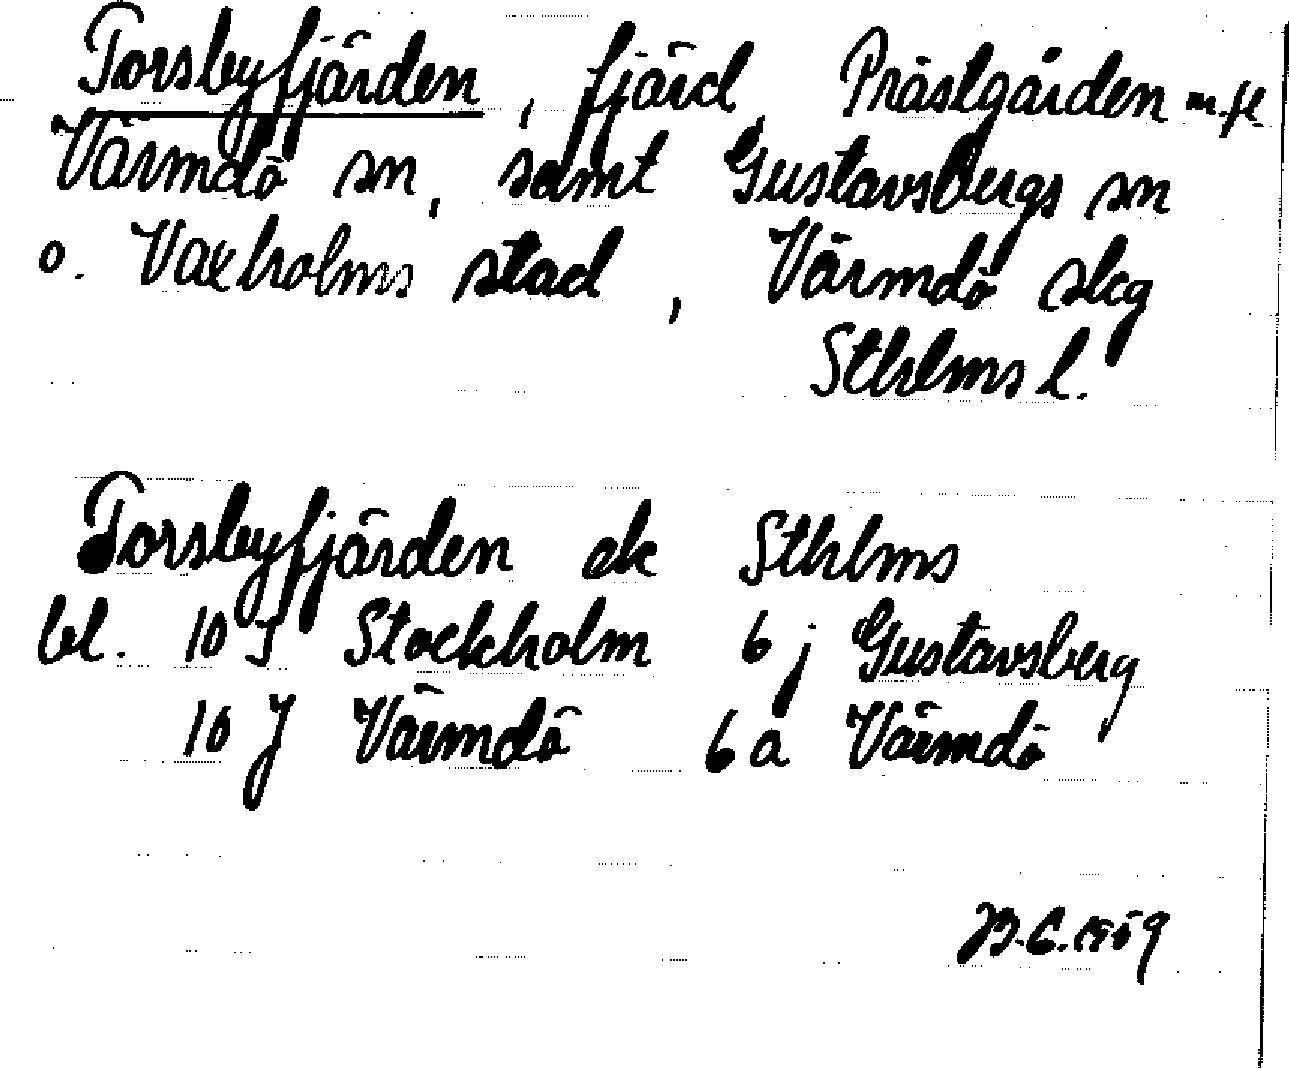 Torsbyfjärden, fjärd, Prästgården m.fl.
Värmdö sn, samt Gustavsbergs sn
o. Vaxholms stad, Värmdö skg
Sthlms l.
Torsbyfjärden ek Sthlms
bl. 10 I Stockholm 6 j Gustavsberg
10 J Värmdö 6 a Värmdö